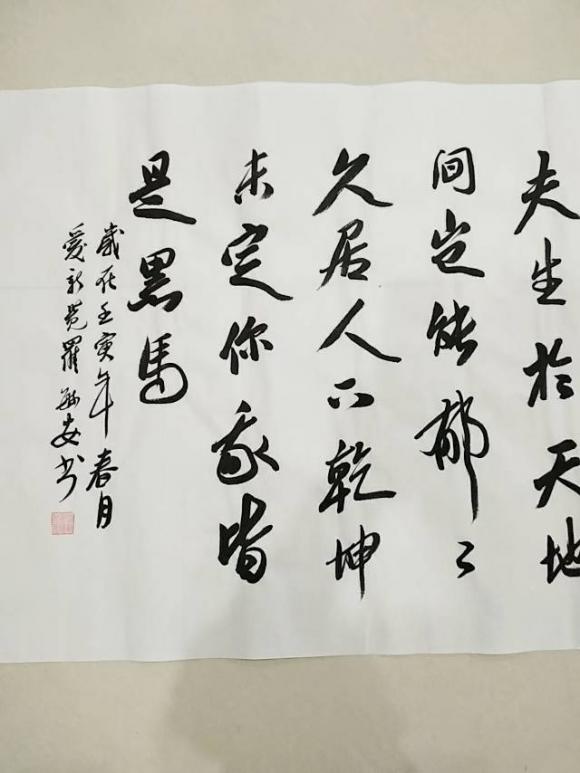 夫生於天地
间岂能郁々
久居人下乾坤
未定你我皆
是黑馬
歲在壬寅年春月
爱新觉羅敏安书